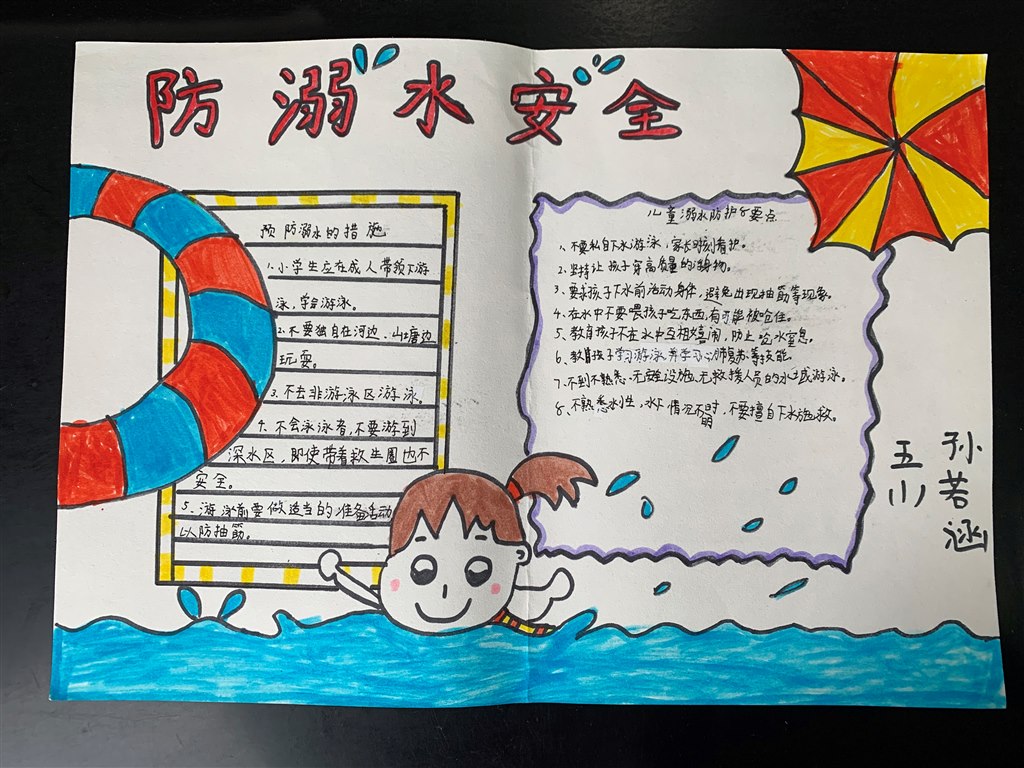 防溺水安全
预防溺水的措施
1.小学生应在成人带领下游
泳,学会游泳。
2.不要独自在河边、山塘边
玩耍。
3.不去非游泳区游泳。
4.不会泳泳者,不要游到
深水区,即使带着救生圈也不
安全。
5.游泳前要做适当的准备活动
以防抽筋。
儿童溺水防护8要点
1、不要私自下水游泳,家长时刻看护。
2、坚持让孩子穿高质量的浮物。
3、要求孩子下水前活动身体,避免出现抽筋等现象。
4、在水中不要喂孩子吃东西,有可能被呛住。
5、教育孩子不在水中互相嬉闹,防止呛水窒息。
6、教育孩子学习游泳,并学习心肺复苏等技能。
7、不到不熟悉、无安全设施、无救援人员的水域游泳。
8、不熟悉水性,水下情况不明时,不要擅自下水施救。
五(1)
孙若涵